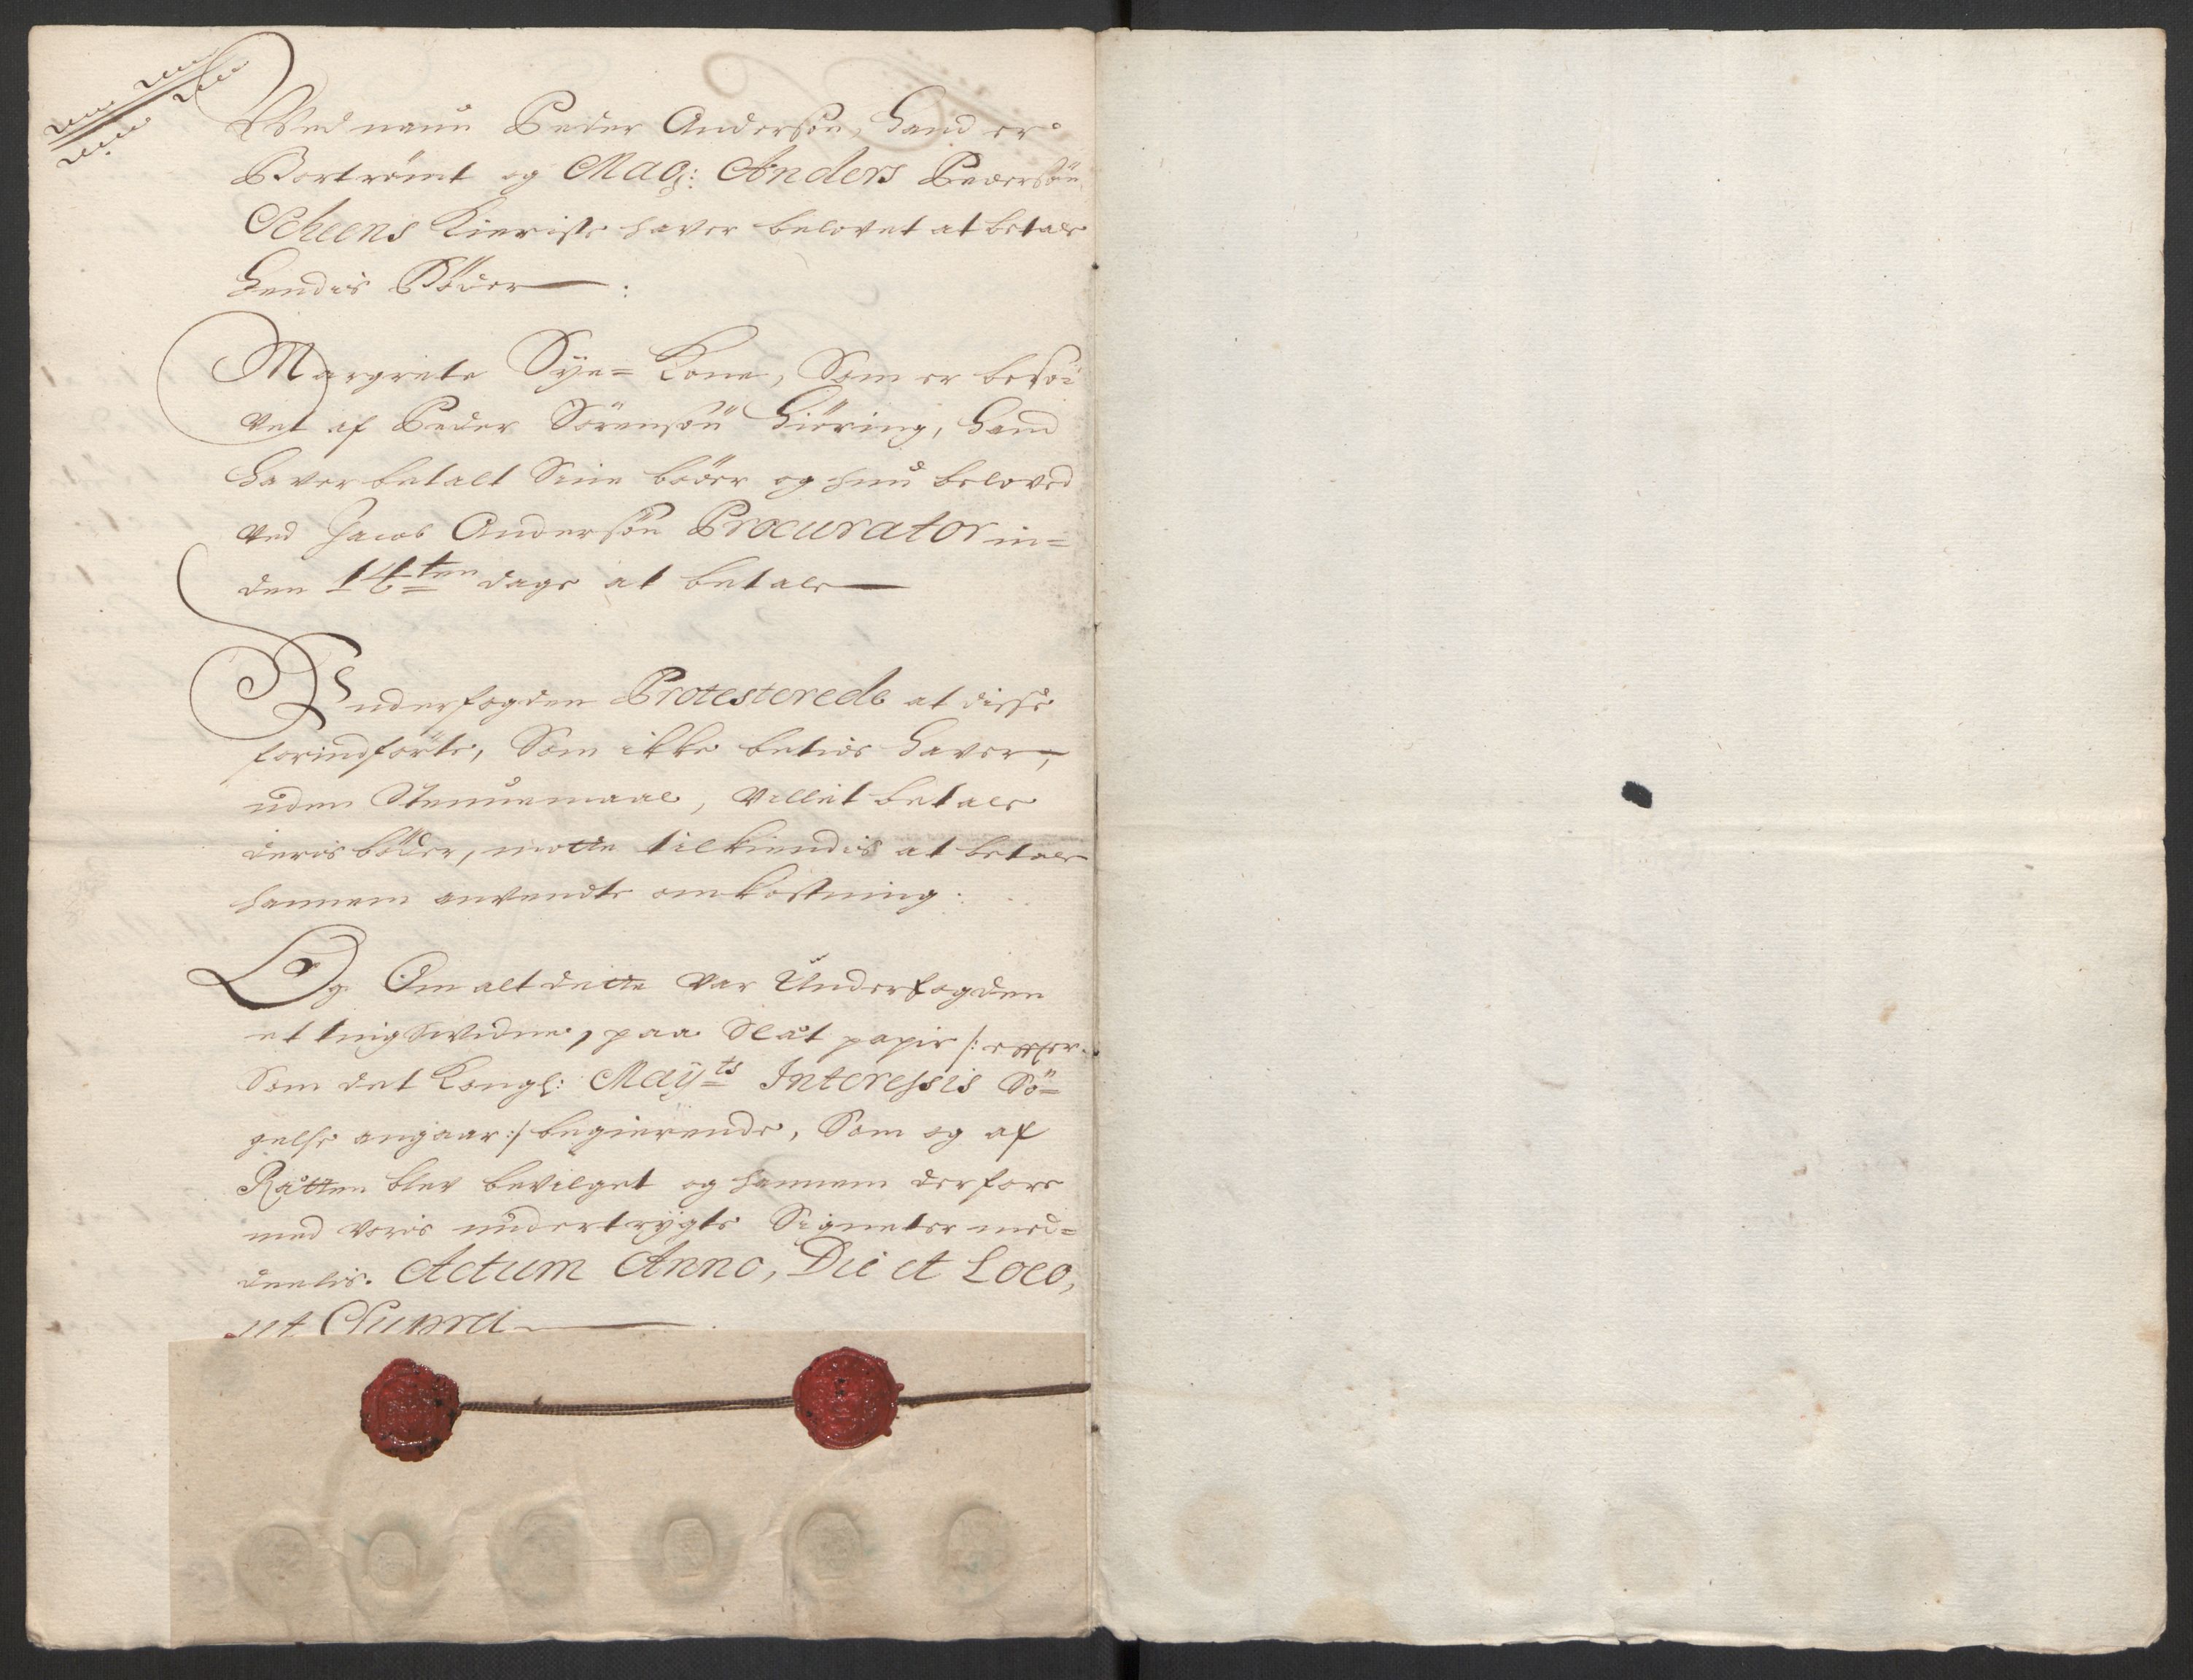 Ved naun Peder Andersøn, Hand er
Bortrømt og Mag: Anders Pedersøn
Scheens Kieriste haver belovet at betale
Hendis Bøder :
Margrete Sye= Kone, Som er besoi
vet af Peder Sörensøn Hiöring, Hand
Haver betalt Sine bøder og hun beloved
ved Jacob Andersøn Procurator in=
den 14ten dage at betale
Underfogden Protesterede at disse
forindførte, Som ikke betids haver,
uden Stemnemaal, Villet betale
deris böder, motte tilkiendis at betale
hannem anvendte omkostning:
Og Om alt dette Var Underfogden
et tingsvidne, paa Slät papir /: efter
Som det Kongl: Mayts Interessis Sö=
gelse angaar :/ begierende, Som og af
Rätten blev bevilget og hannem derfore
med voris undertrygte Signeter med=
deelis. Actum Anno, Die et Loco,
ut Supra